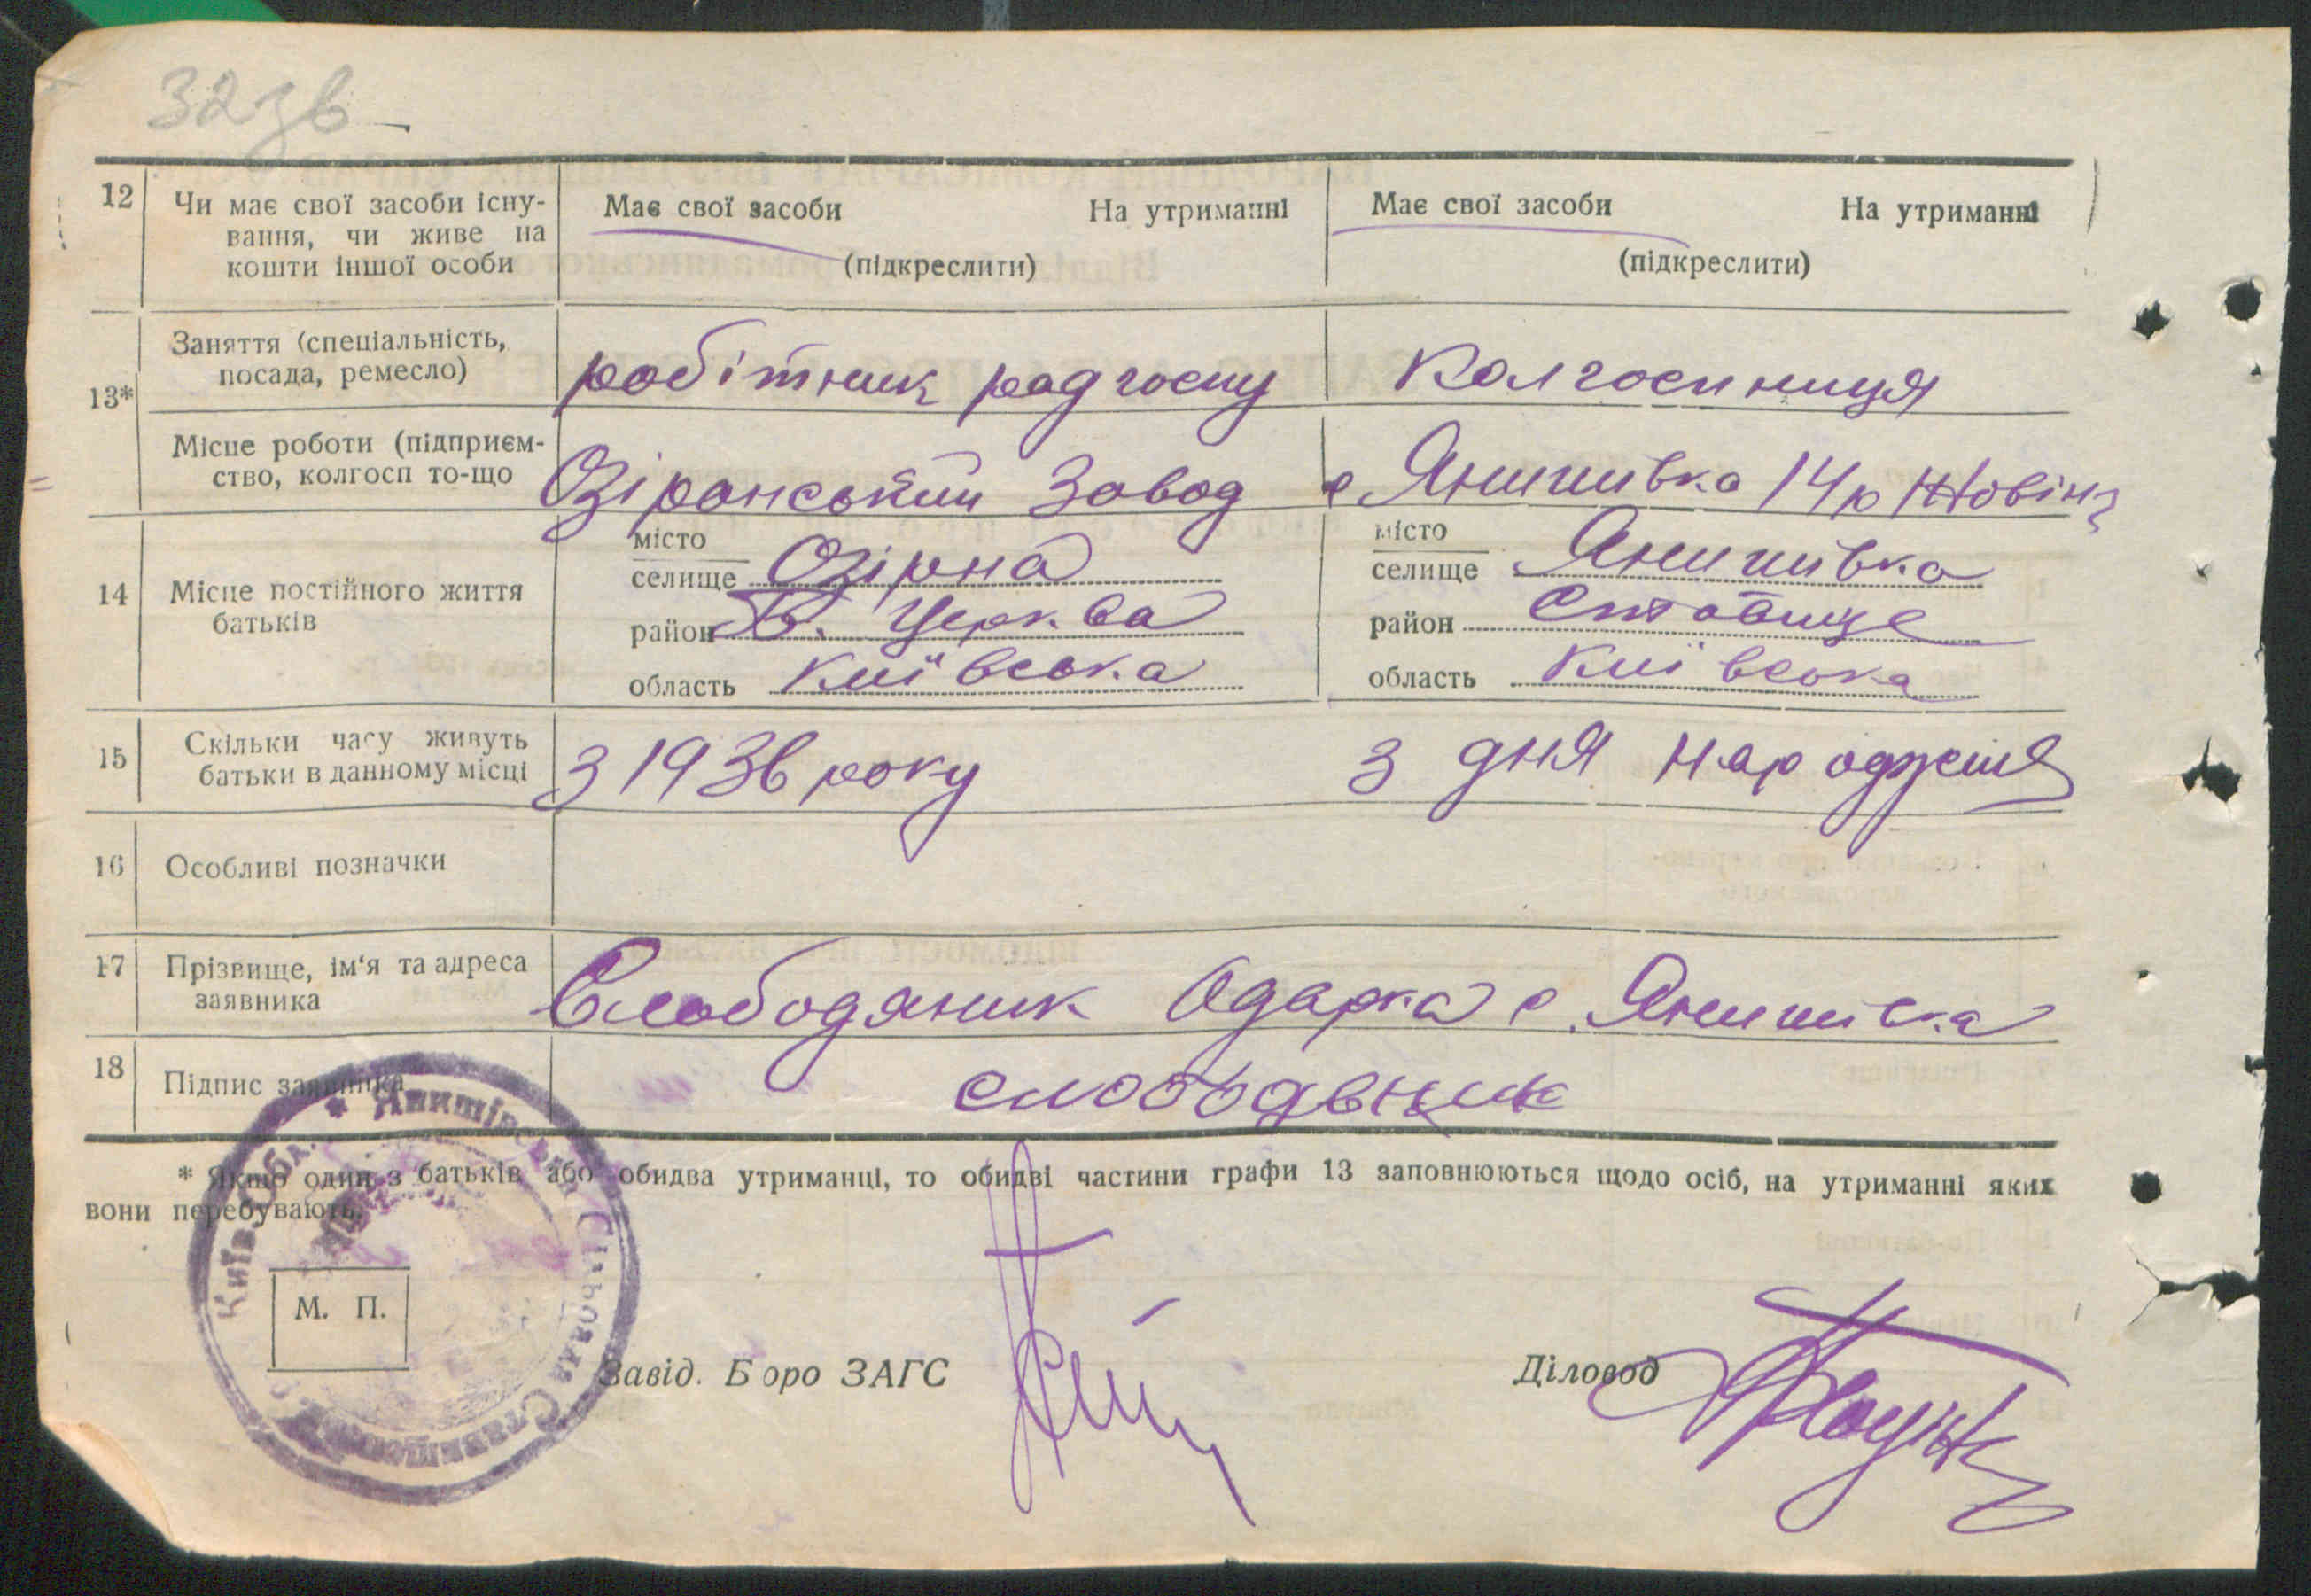 32зв
12
Чи має свої засоби існу-
вання, чи живе на
кошти іншої особи
Має свої засоби На утриманні
(підкреслити)
Має свої засоби На утриманні
(підкреслити)
13*
Заняття (спеціальність,
посада, ремесло)
робітник радгоспу
Колгоспниця
Місце роботи (підприєм-
ство, колгосп то-що
Озіранський Завод
с Янишивка 14 р Жовтня
14
Місце постійного життя
батьків
місто
селище Озірна
район Б. Церква
область Київська
місто
селище Янишивка
район Ставище
область Київська
15
Скільки часу живуть
батьки в данному місці
З 1936 року
З дня народження
16
Особливі позначки
17
Прізвище, ім'я та адреса
заявника
Слободяник Одарка с. Янишівка
18
Підпис заявника
слободяник
* Якщо один з батьків або обидва утриманці, то обидві частини графи 13 заповнюються щодо осіб, на утриманні яких
вони перебувають.
Київ. Обл. * Янишівська Сільрада Ставищенськ.
М. П.
Завід. Бюро ЗАГС
Діловод